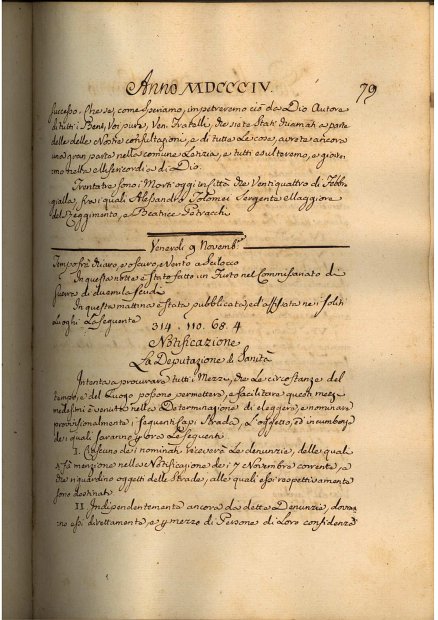 Anno MDCCCIV.
79
successo. Che se, come speriamo, impetreremo ciò da Dio Autore
di tutti i Beni, Voi pure, Ven. Fratelli, che siete stati chiamati a parte
delle Nostre consultazioni, e di tutte le cose, avrete ancora
una gran parte nella comune Letizia, e tutti esulteremo, e gioire-
mo nella Misericordia di Dio.
Trentatre sono i Morti oggi in Città che Ventiquattro di Febb:
gialla, fra i quali Alessandro Tolomei Sergente Maggiore
del Reggimento, e Beatrice Petracchi
Venerdì 9 Novemb:re
Tempo frà chiaro, e oscuro, e Vento a Scilocco
In questa notte è stato fatto un Furto nel Commissariato di
Guerra di duemila scudi
In questa mattina è stata pubblicata, ed affissata nei soliti
Luoghi La seguente
314. 110. 68. 4
Notificazione
La Deputazione di Sanità
Intenta a procurare tutti i Mezzi, che Le circostanze del
tempo, e del Luogo possono permettere, e facilitare questi mezzi
medesimi è venuta nella Determinazione di eleggere, e nominare
provvisionalmente i seguenti Capi Strada, L'oggetto, ed incumbenze
dei quali saranno Le seguenti
I. Ciascuno dei nominati riceverà Le denunzie, delle quali
si fà menzione nella Notificazione dei 7 Novembre corrente, e
che riguardino oggetti delle Strade, alle quali essi respettivamente
sono destinati
II Indipendentemente ancora da dette Denunzie, dovran-
no essi direttamente, e p mezzo di Persone di Loro confidenza